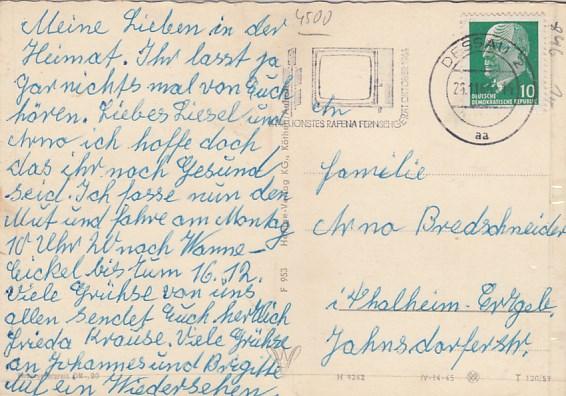 Meine Lieben in der
Heimat. Ihr lasst ja
gar nichts mal von Euch
hören. Liebes Liesel und
Arno ich hoffe doch
das ihr noch Gesund
seid. Ich fasse nun den
Mut und fahre am Montag
10 Uhr 20 nach Wanne-
Eickel bis zum 16.12.
Viele Grühse von uns
allen sendet Euch hertlich
Frieda Krause. Viele Grühse
an Johannes und Brigitte
Auf ein Wiedersehen.
4500
DESSAU
aa
RAFENA FERNSEH
10
DEUTSCHE
DEMOKRATISCHE REPUBLIK
Familie
Arno Bredschneider
i Thalheim-Ertgeb.
Jahnsdorferstr.
F 953
H 9262
IV-14-45
T 120/59